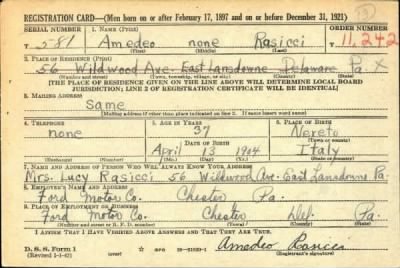 REGISTRATION CARD—(Men born on or after February 17, 1897 and on or before December 31, 1921)
SERIAL NUMBER 1. NAME (Print) ORDER NUMBER
T 581 Amedeo none Rasicci 11,242
(First) (Middle) (Last)
2. PLACE OF RESIDENCE (Print)
56 Wildwood Ave. East Lansdowne Delaware Pa. X
(Number and street) (Town, township, village, or city) (County) (State)
[THE PLACE OF RESIDENCE GIVEN ON THE LINE ABOVE WILL DETERMINE LOCAL BOARD
JURISDICTION; LINE 2 OF REGISTRATION CERTIFICATE WILL BE IDENTICAL]
3. MAILING ADDRESS
Same
(Mailing address if other than place indicated on line 2. If same insert word same)
4. TELEPHONE 5. AGE IN YEARS 6. PLACE OF BIRTH
none 37 Nereto
DATE OF BIRTH (Town or county)
April 13 1904 Italy
(Exchange) (Number) (Mo.) (Day) (Yr.) (State or country)
7. NAME AND ADDRESS OF PERSON WHO WILL ALWAYS KNOW YOUR ADDRESS
Mrs. Lucy Rasicci 56 Wildwood Ave. East Lansdowne Pa.
8. EMPLOYER'S NAME AND ADDRESS
Ford Motor Co. Chester Pa.
9. PLACE OF EMPLOYMENT OR BUSINESS
Ford Motor Co. Chester Del. Pa.
(Number and street or R. F. D. number) (Town) (County) (State)
I AFFIRM THAT I HAVE VERIFIED ABOVE ANSWERS AND THAT THEY ARE TRUE.
D. S. S. Form 1
(Revised 1-1-42) (over) Amedeo Rasicci
(Registrant's signature)